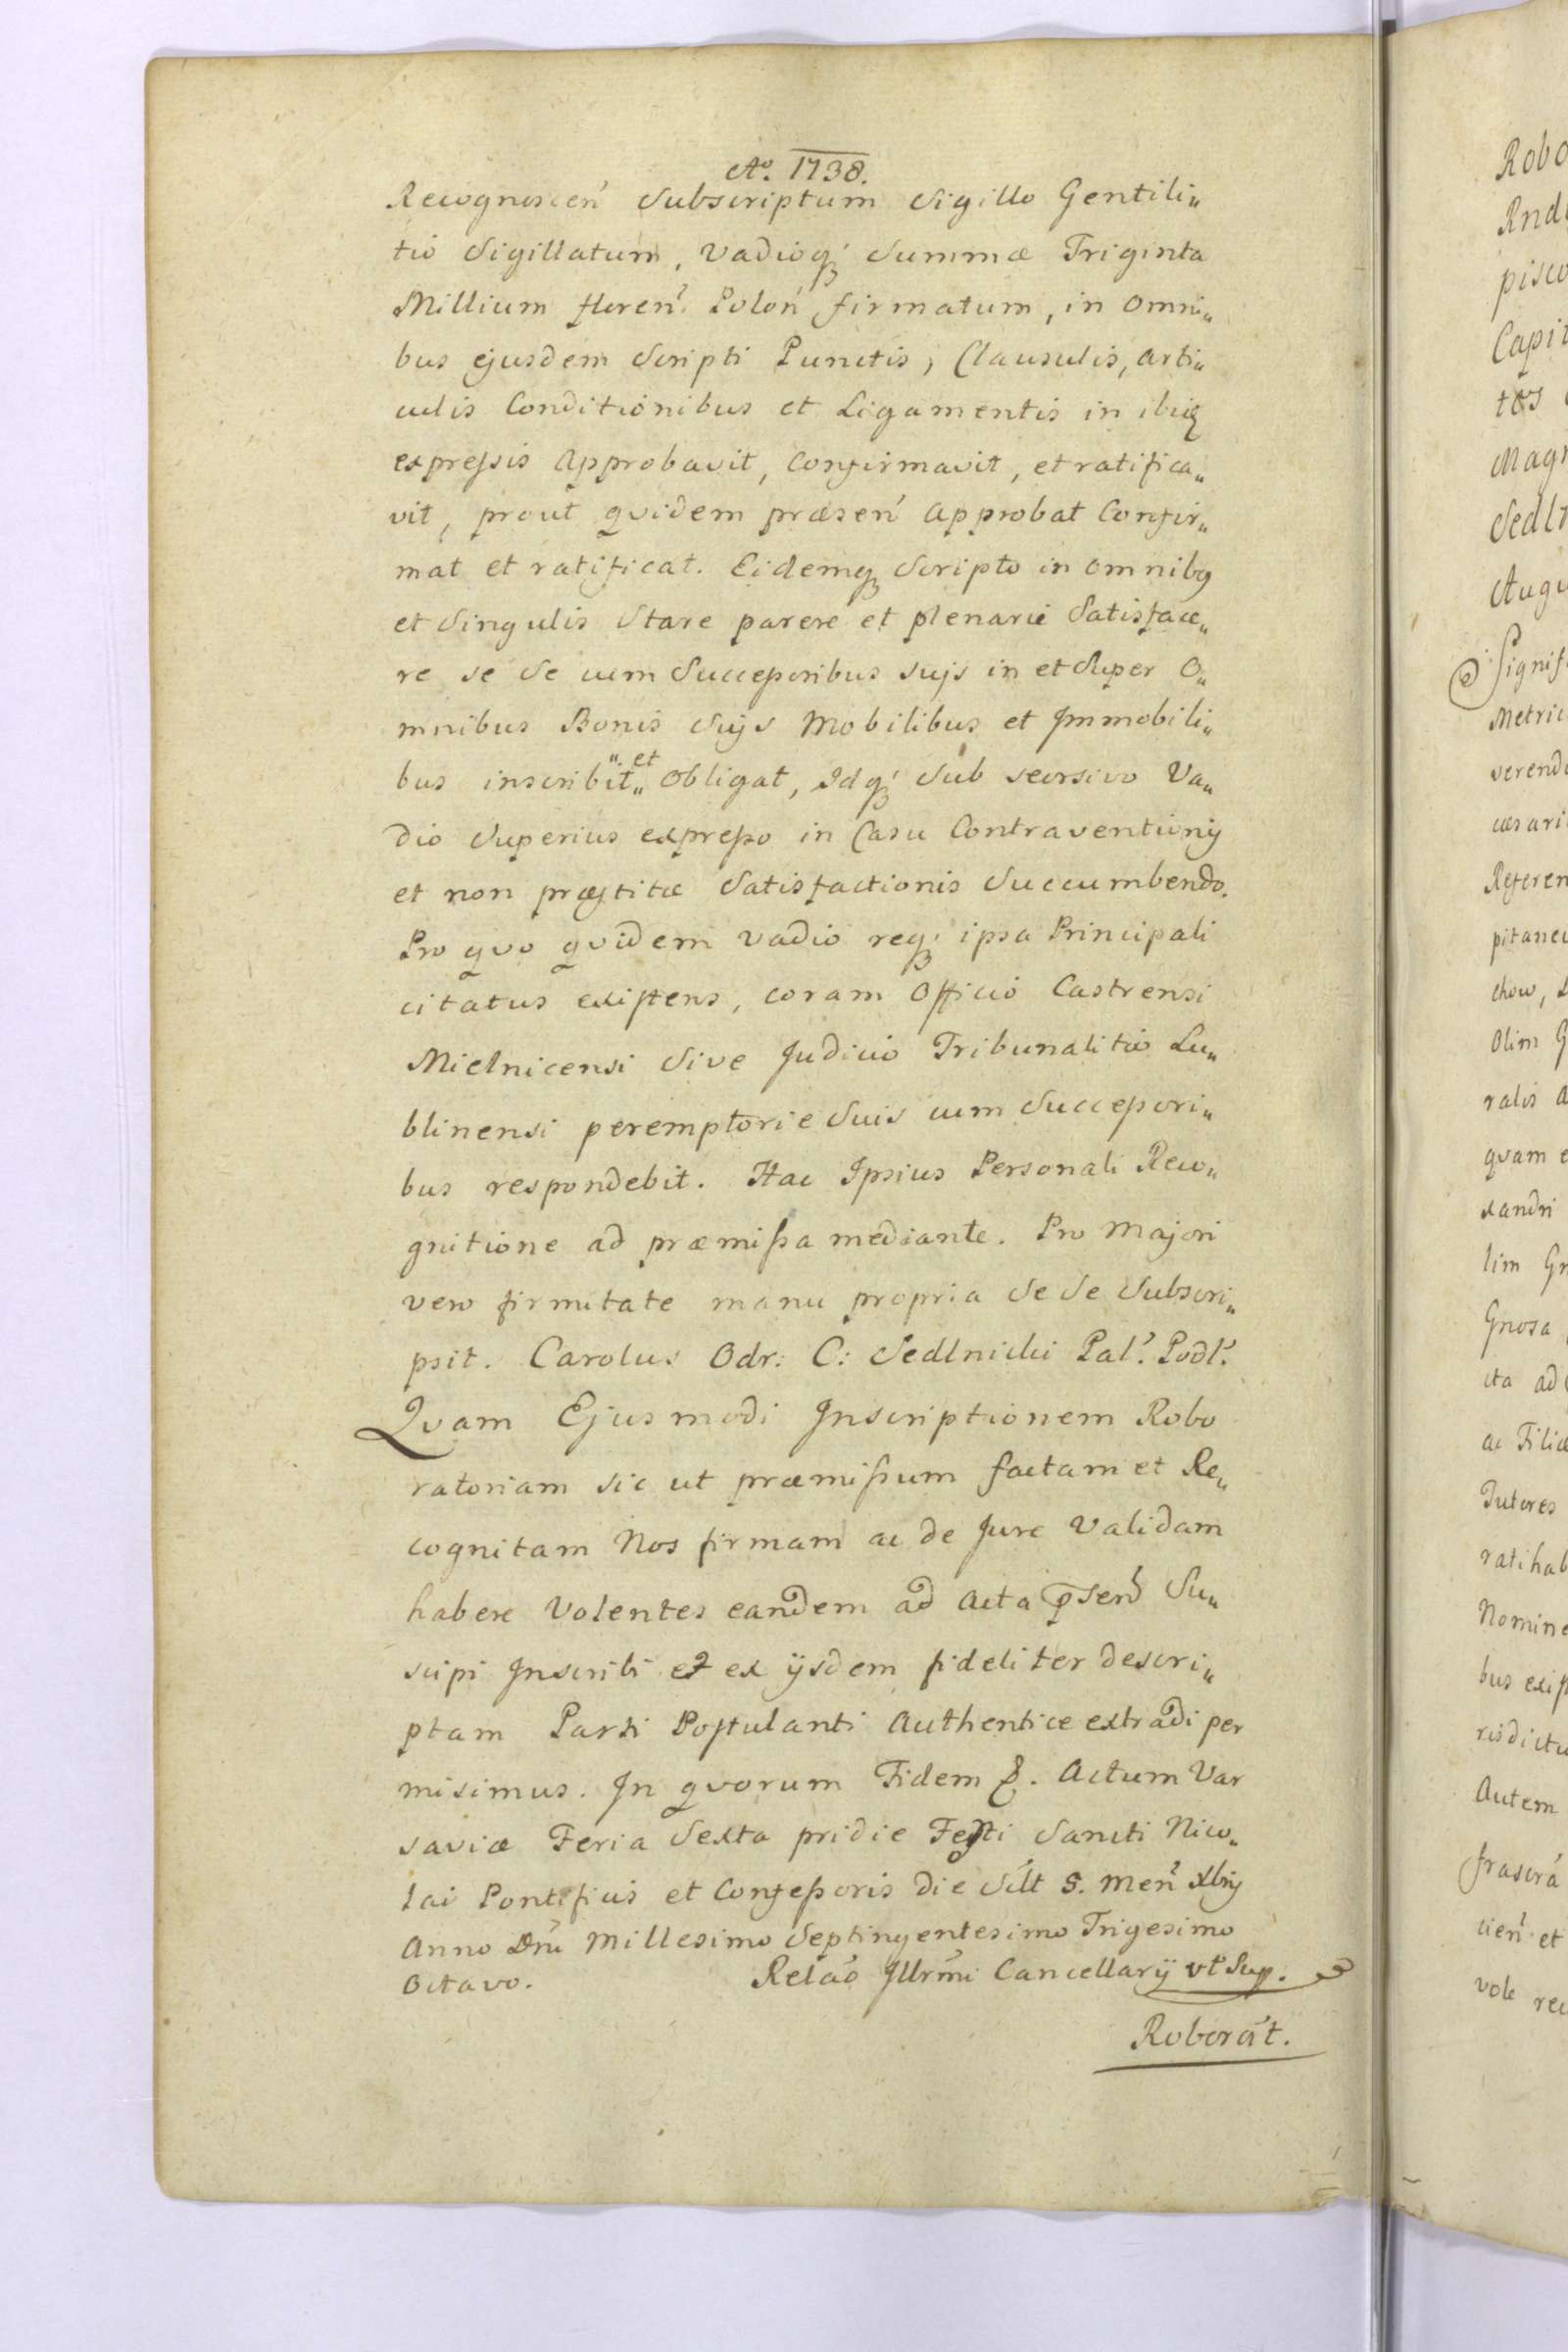 Ao. 1738.
Recognoscen' Subscriptum Sigillo Gentili„
tio Sigillatum, Vadioq; Summæ Triginta
Millium floren' Polon' firmatum, in omni„
bus ejusdem Scripti Punctis, Clausulis, arti„
culis Conditionibus et Ligamentis in ibiq
expressis Approbavit, Confirmavit, et ratifica„
vit, prout quidem præsen' approbat Confir„
mat et ratificat. Eidemq Scripto in omnibq
et Singulis Stare parere et plenarie Satisface„
re se Se cum Successoribus Sujs in et Super O„
mnibus Bonis Sujs Mobilibus et Immobili„
bus inscribit„ et Obligat, Idq; Sub seorsivo Va„
dio Superius expresso in Casu Contraventionij
et non præstitæ Satisfactionis Succumbendo.
Pro quo quidem vadio req; ipsa Principali
citatus existens, coram Officio Castrensi
Mielnicensi Sive Judicio Tribunalitio Lu„
blinensi peremptorie Suis cum Successori„
bus respondebit. Hac Ipsius Personali Reco„
gnitione ad præmissa mediante. Pro Majori
vero firmitate manu propria Se Se Subscri„
psit. Carolus Odr: C: Sedlnicki Pal'. Podl'.
Quam Ejusmodi Inscriptionem Robo
ratoriam sic ut præmissum factam et Re„
cognitam Nos firmam ac de Jure Validam
habere Volentes eandem ad Acta pñsen' Su„
scipi Inscribi et ex ijsdem fideliter descri„
ptam Parti Postulanti Authentice extradi per
misimus. In quorum Fidem &. Actum Var
saviæ Feria Sexta pridie Festi Sancti Nico„
lai Pontificis et Confessoris die Scilt 5. Men' Xbrij
Anno Dni Millesimo Septingentesimo Trigesimo
Octavo. Relao Illrmi Cancellarij vt Sup.
Roborat.
Robo
Rndi
pisco
Capit
tos
Magn
Sedln
Augu
Signif
Metric
verendo
cæsari
Referen
pitaneu
chow,
Olim G
ralis a
quam e
xandri
lim Gn
Gnosa
cta ad
ac Filiæ
Tutores
ratihab
Nomine
bus exis
risdictu
Autem
frascra
cien' et
vole rec